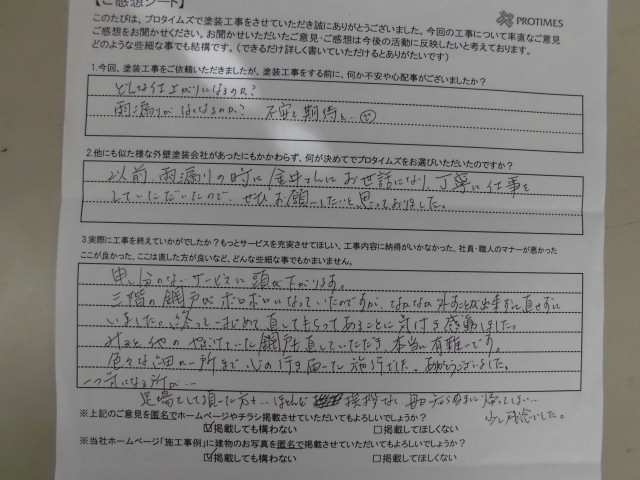 【ご感想シート】
PROTIMES
このたびは、プロタイムズで塗装工事をさせていただき誠にありがとうございました。今回の工事について率直なご意見
ご感想をお聞かせください。お聞かせいただいたご意見・ご感想は今後の活動に反映したいと考えております。
どのような些細な事でも結構です。(できるだけ詳しく書いていただけるとありがたいです)
1.今回、塗装工事をご依頼いただきましたが、塗装工事をする前に、何か不安や心配事がございましたか?
どんな仕上がりになるのか?
雨漏りがなおるのか? 不安と期待と…
2.他にも似た様な外壁塗装会社があったにもかかわらず、何が決めてでプロタイムズをお選びいただいたのですか?
以前、雨漏りの時に金井さんにお世話になり、丁寧に仕事を
していただいたので、ぜひお願いしたいと思っておりました。
3.実際に工事を終えていかがでしたか?もっとサービスを充実させてほしい、工事内容に納得がいかなかった、社員・職人のマナーが悪かった
ここが良かった、ここは直した方が良いなど、どんな些細な事でもかまいません。
申し分のないサービスに頭が下がります。
三階の網戸がボロボロになっていたのですが、なかなか外すことが出来ずに直せずに
いました。終ってはじめて直してもらってあることに気付き感動しました。
他の やぶけていた網戸も直していただき、本当に有難いです。
色々な細かい所まで心の行き届いた施行でした。ありがとうございました。
一つ気になる所が…
足場をして頂いた方々…ほとんど挨拶なく、帰ってしまい…
少し残念でした。
※上記のご意見を匿名でホームページやチラシ掲載させていただいてもよろしいでしょうか?
☑掲載しても構わない □掲載してほしくない
※当社ホームページ「施工事例」に建物のお写真を匿名で掲載させていただいてもよろしいでしょうか?
☑掲載しても構わない □掲載してほしくない